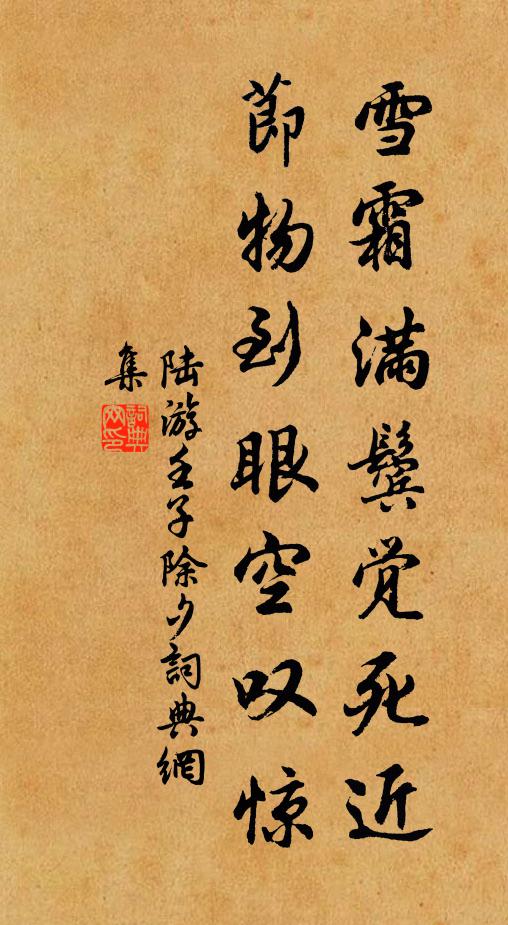 雪霜满鬓觉死近
節物到眼空叹惊
陆游壬子除夕詞典網
集
詞典
网印